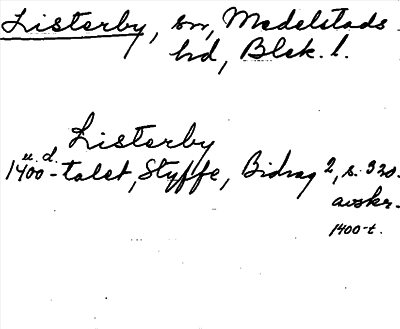 Listerby, sn, Medelstads
hd, Blek. l.
Listerby
u. d.
1400-talet, Styffe, Bidrag 2, s. 320.
avskr.
1400-t.